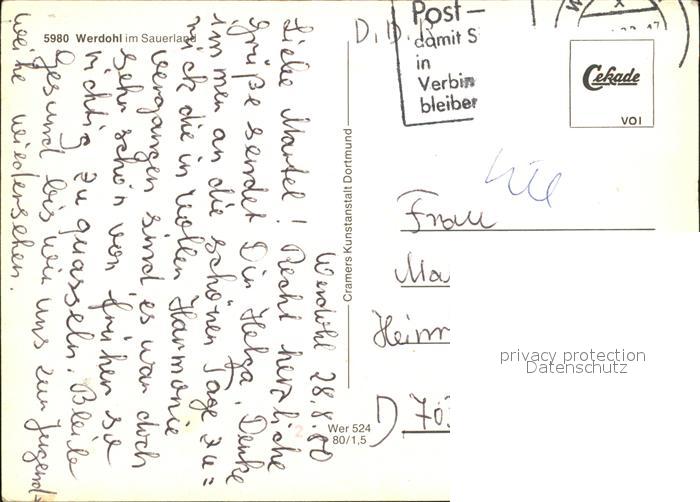 5980 Werdohl im Sauerland
Werdohl 28.8.80
Liebe Martel! Recht herzliche
Grüße sendet Dir Helga. Denke
immer an die schönen Tage zu=
rück die in vollen Harmonie
vergangen sind es war doch
sehr schön von früher so
richtig zu quasseln. Bleibe
gesund bis wir uns zur Jugend=
weihe wiedersehen.
Cramers Kunstanstalt Dortmund
Wer 524
80/1,5
D.D.
Post–
damit S
in
Verbin
bleiben
Cekade
VOI
Frau
Ma
Heinr
D 703
privacy protection
Datenschutz